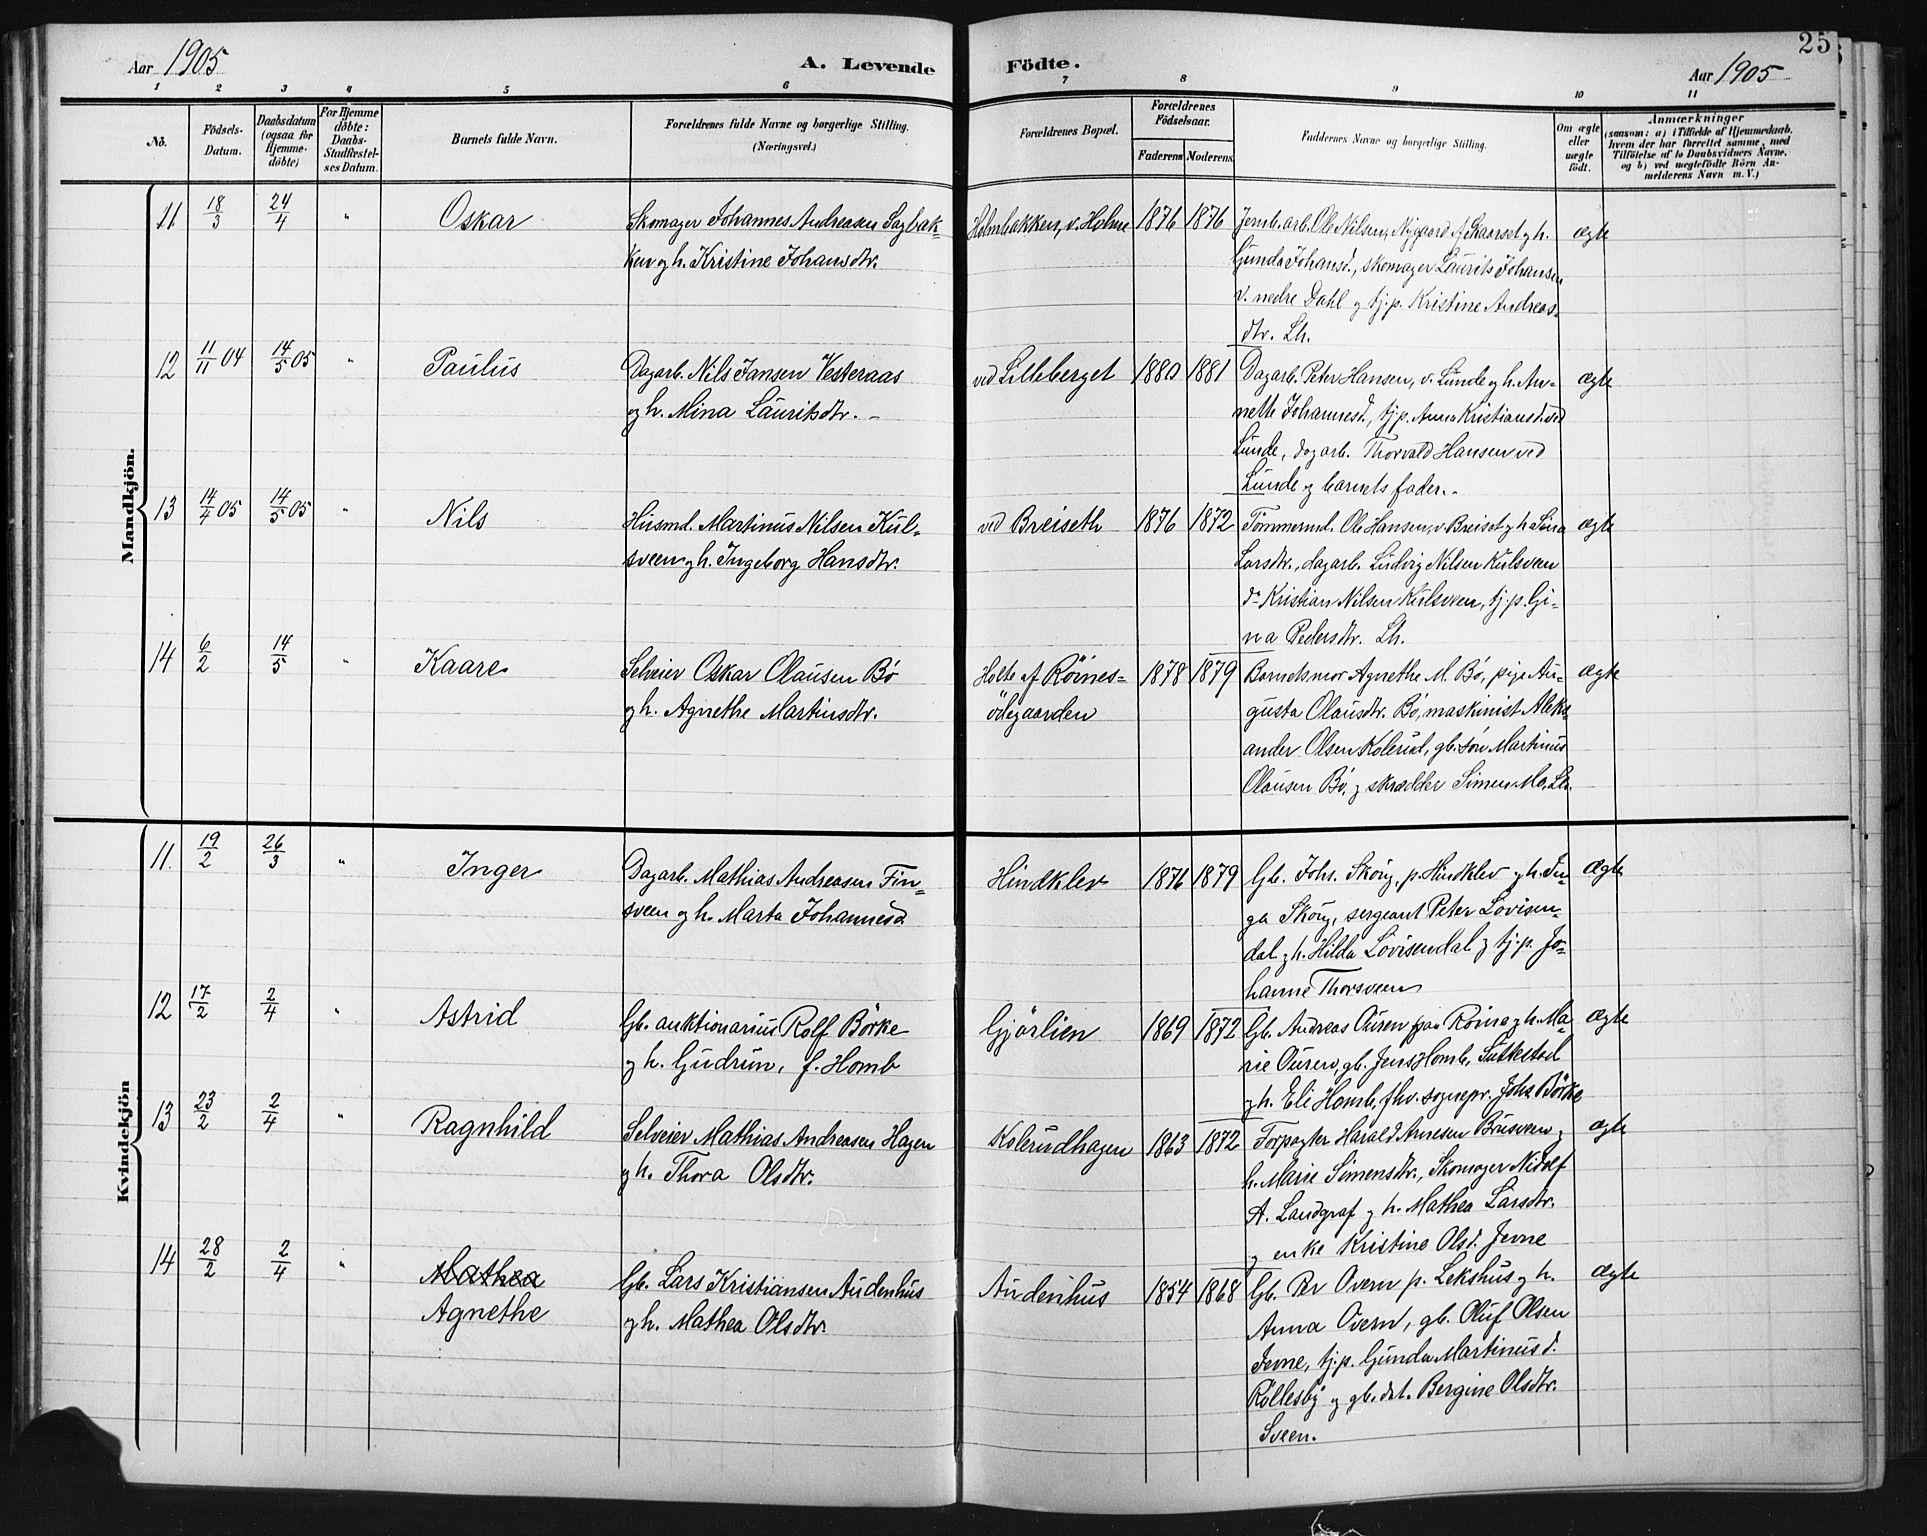 Aar 1905
A. Levende Födte.
25
Aar 1905
1 2 3 4 5 6 7 8 9 10 11
No.
Födsels-Datum.
Daabsdatum (ogsaa for Hjemme-döbte)
For Hjemme döbte: Daabs-Stadfæstel-ses Datum.
Barnets fulde Navn.
Forældrenes fulde Navne og borgerlige Stilling. (Næringsvei.)
Forældrenes Bopæl.
Forældrenes Födselsaar.
Faderens Moderens
Faddernes Navne og borgerlige Stilling.
Om ægte eller uægte födt.
Anmærkninger
(saasom: a) i Tilfælde af Hjemmedaab,
hvem der har forrettet samme, med
Tilföielse af to Daabsvidners Navne,
og b) ved uægtefödte Börn An-
melderens Navn m. V.)
Mandkjön.
11 18/3 24/4 " Oskar
Skomager Johannes Andreasen Sagbak-
ken og h. Kristine Johansdtr.
Holmbakken, v. Holme 1876 1876
Jernb.arb. Ole Nilsen, Nygaard af Skaarset og h.
Gunda Johansd., skomager Laurits Johansen
v. nedre Dahl og tj.p. Kristine Andreas-
dtr. Lh.
ægte
12 11/11 04 14/5 05 " Paulus
Dagarb. Nils Jansen Vesteraas
og h. Mina Lauritsdtr. -
ved Lilleberget 1880 1881
Dagarb. Peter Hansen, v. Lunde og h. An-
nette Johannesd., tj.p. Anna Kristiansd. ved
Lunde, dagarb. Thorvald Hansen ved
Lunde og barnets fader. -
ægte
13 14/4 05 14/5 05 " Nils
Husmd. Martinus Nilsen Kul-
sveen og h. Ingeborg Hansdtr.
ved Breiseth 1876 1872
Tømmermd. Ole Hansen, v. Breiset og h. Lina
Larsdtr., dagarb. Ludvig Nilsen Kulsveen
do Kristian Nilsen Kulsveen, tj.p. Gi-
na Pedersdtr. Lh.
ægte
14 6/2 14/5 " Kaare
Selveier Oskar Olausen Bö
og h. Agnethe Martinsdtr.
Holte af Röines-
ödegaarden
1878 1879
Barnets mor Agnethe M. Bö, pige Au-
gusta Olausdtr. Bö, maskinist Aleks-
ander Olsen Kolerud, gb. søn Martinus
Olausen Bö, og skrædder Simen Mo. Lh.
ægte
Kvindekjön
11. 19/2 26/3 " Inger
Dagarb. Mathias Andreasen Fin-
sveen og h. Marta Johannesd.
Hindklev 1876 1879
Gb. Johs. Skóug, p. Hindklev og h. In-
ga Skoug, sergeant Peter Lovisen-
dal og h. Hilda Lovisendal og tj.p. Jo-
hanne Thorsveen
ægte
12 17/2 2/4 " Astrid
Gb. auktionarius Rolf Börke
og h. Gudrun, f. Homb
Gjörlien 1869 1872
Gb. Andreas Ouren paa Röine og h. Ma-
rie Ouren, gb. Jens Homb, Suttestad
og h. Eli Homb, fhv. sognepr. Johs Börke
ægte
13 23/2 2/4 " Ragnhild
Selveier Mathias Andreasen Hagen
og h. Thora Olsdtr.
Kolerudhagen 1863 1872
Forpagter Harald Arnesen Brusveen og
h. Marie Simensdtr., Skomager Nidolf
A. Landgraf og h. Mathea Larsdtr.
og enke Kristine Olsd. Jevne
ægte
14 28/2 2/4 " Mathea
Agnethe
Gb. Lars Kristiansen Audenhus
og h. Mathea Olsdtr.
Audenhus 1854 1868
Gb. Per Overn p. Lekshus og h.
Anna Overn, gb. Oluf Olsen
Jevne, tj.p. Gunda Martinusd.
Rollesby og gb.dat. Bergine Olsdtr.
Sveen.
ægte